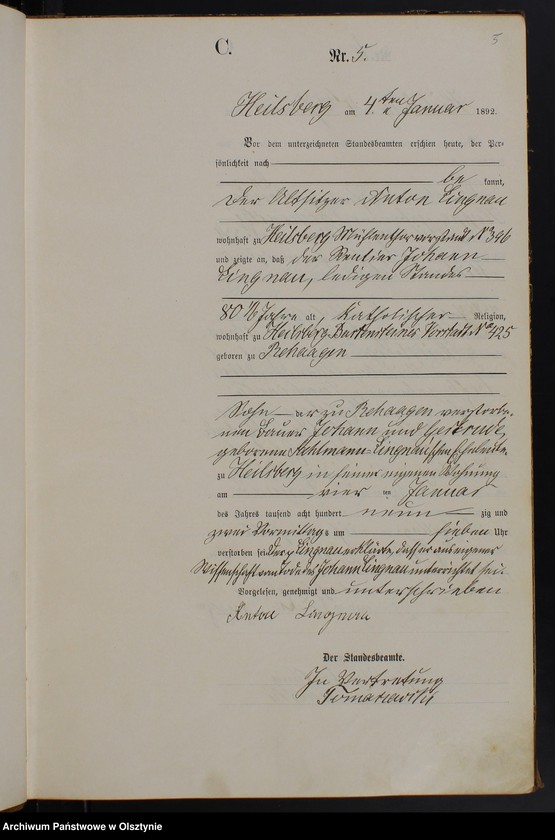 5
C.
Nr. 5.
Heilsberg am 4ten Januar 1892.
Vor dem unterzeichneten Standesbeamten erschien heute, der Per-
sönlichkeit nach
be kannt,
der Altsitzer Anton Lingnau
wohnhaft zu Heilsberg Mühlenthorvorstadt No 396
und zeigte an, daß der Rentier Johann
Lingnau, ledigen Standes
80 Jahre alt, Katholischer Religion,
wohnhaft zu Heilsberg Bartensteiner Vorstadt No 125
geboren zu Rehaagen
Sohn der zu Rehaagen verstorbe-
nen Bauer Johann und Gertrude,
geborene Lingnauschen Eheleute
zu Heilsberg in seiner eigenen Wohnung
am vier ten Januar
des Jahres tausend acht hundert neun zig und
zwei Vormittags um sieben Uhr
verstorben sei. Der p. Lingnau erklärte, dass er aus eigener
Wissenschaft vom Tode des Johann Lingnau unterrichtet sei.
Vorgelesen, genehmigt und unterschrieben
Anton Lingnau
Der Standesbeamte.
In Vertretung
Archiwum Państwowe w Olsztynie